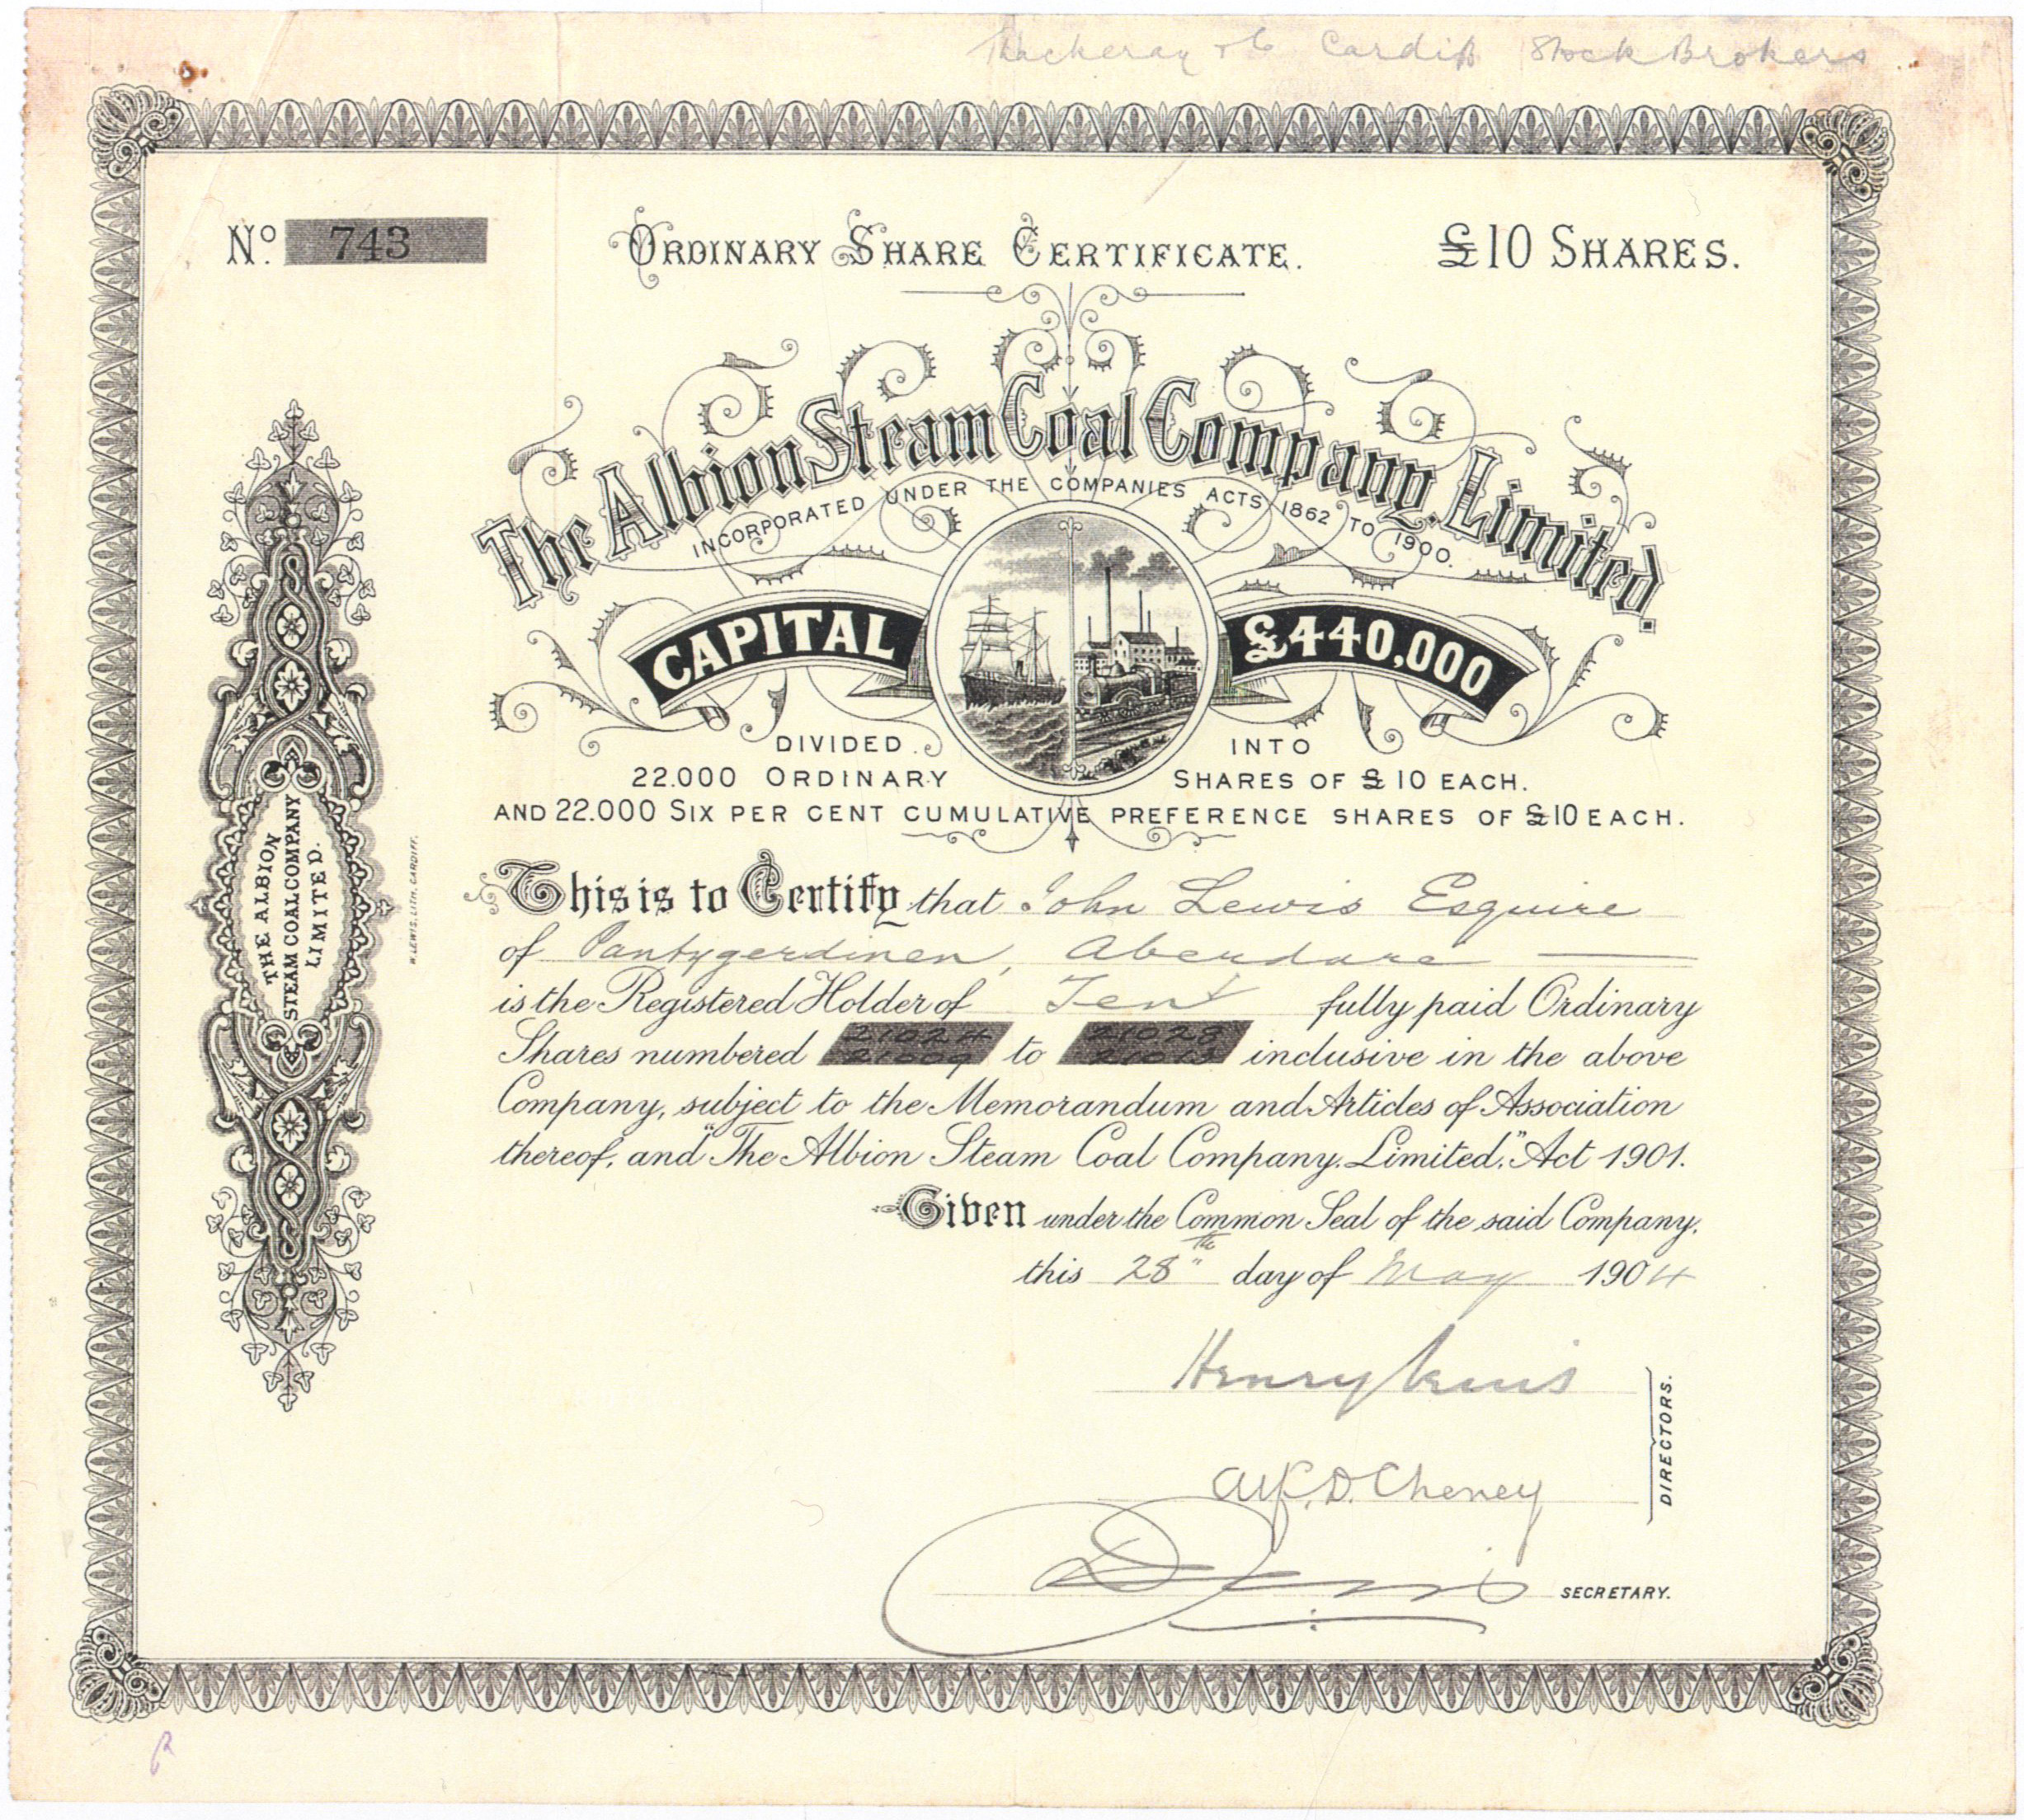 Thackeray & Co Cardiff Stock Brokers
No. 743
ORDINARY SHARE CERTIFICATE.
£10 SHARES.
The Albion Steam Coal Company, Limited.
INCORPORATED UNDER THE COMPANIES ACTS 1862 TO 1900.
CAPITAL £440,000
DIVIDED INTO
22.000 ORDINARY SHARES OF £10 EACH.
AND 22.000 SIX PER CENT CUMULATIVE PREFERENCE SHARES OF £10 EACH.
THE ALBION
STEAM COAL COMPANY
LIMITED.
W. LEWIS. LITH. CARDIFF.
This is to Certify that John Lewis Esquire
of Pantygerdinen, Aberdare
is the Registered Holder of Ten fully paid Ordinary
21024 21028
Shares numbered 21009 to 21013 inclusive in the above
Company, subject to the Memorandum and Articles of Association
thereof, and "The Albion Steam Coal Company, Limited," Act 1901.
Given under the Common Seal of the said Company,
this 28th day of May 1904
Henry Lewis
Alf. D. Cheney
DIRECTORS.
SECRETARY.